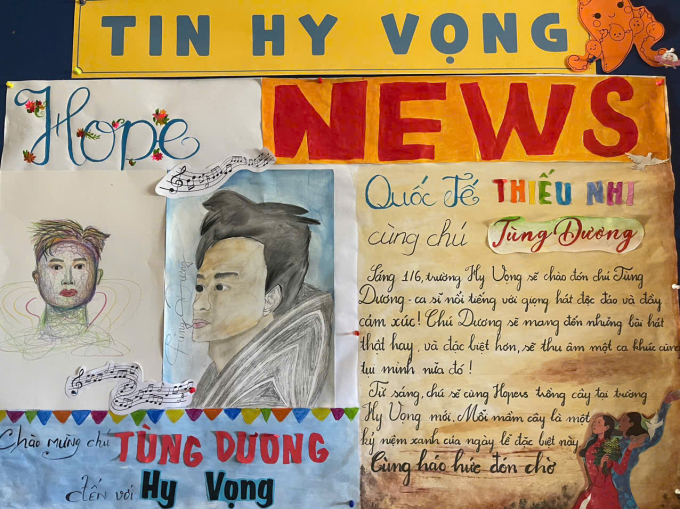 TIN HY VỌNG
Hope
NEWS
Tùng Dương
Chào mừng chú TÙNG DƯƠNG
đến với Hy Vọng
Quốc Tế THIẾU NHI
cùng chú Tùng Dương
Sáng 1/6, trường Hy Vọng sẽ chào đón chú Tùng
Dương - ca sĩ nổi tiếng với giọng hát độc đáo và đầy
cảm xúc! Chú Dương sẽ mang đến những bài hát
thật hay, và đặc biệt hơn, sẽ thu âm một ca khúc cùng
tụi mình nữa đó!
Từ sáng, chú sẽ cùng Hopers trồng cây tại trường
Hy Vọng mới. Mỗi mầm cây là một
kỷ niệm xanh của ngày lễ đặc biệt này
Cùng háo hức đón chờ